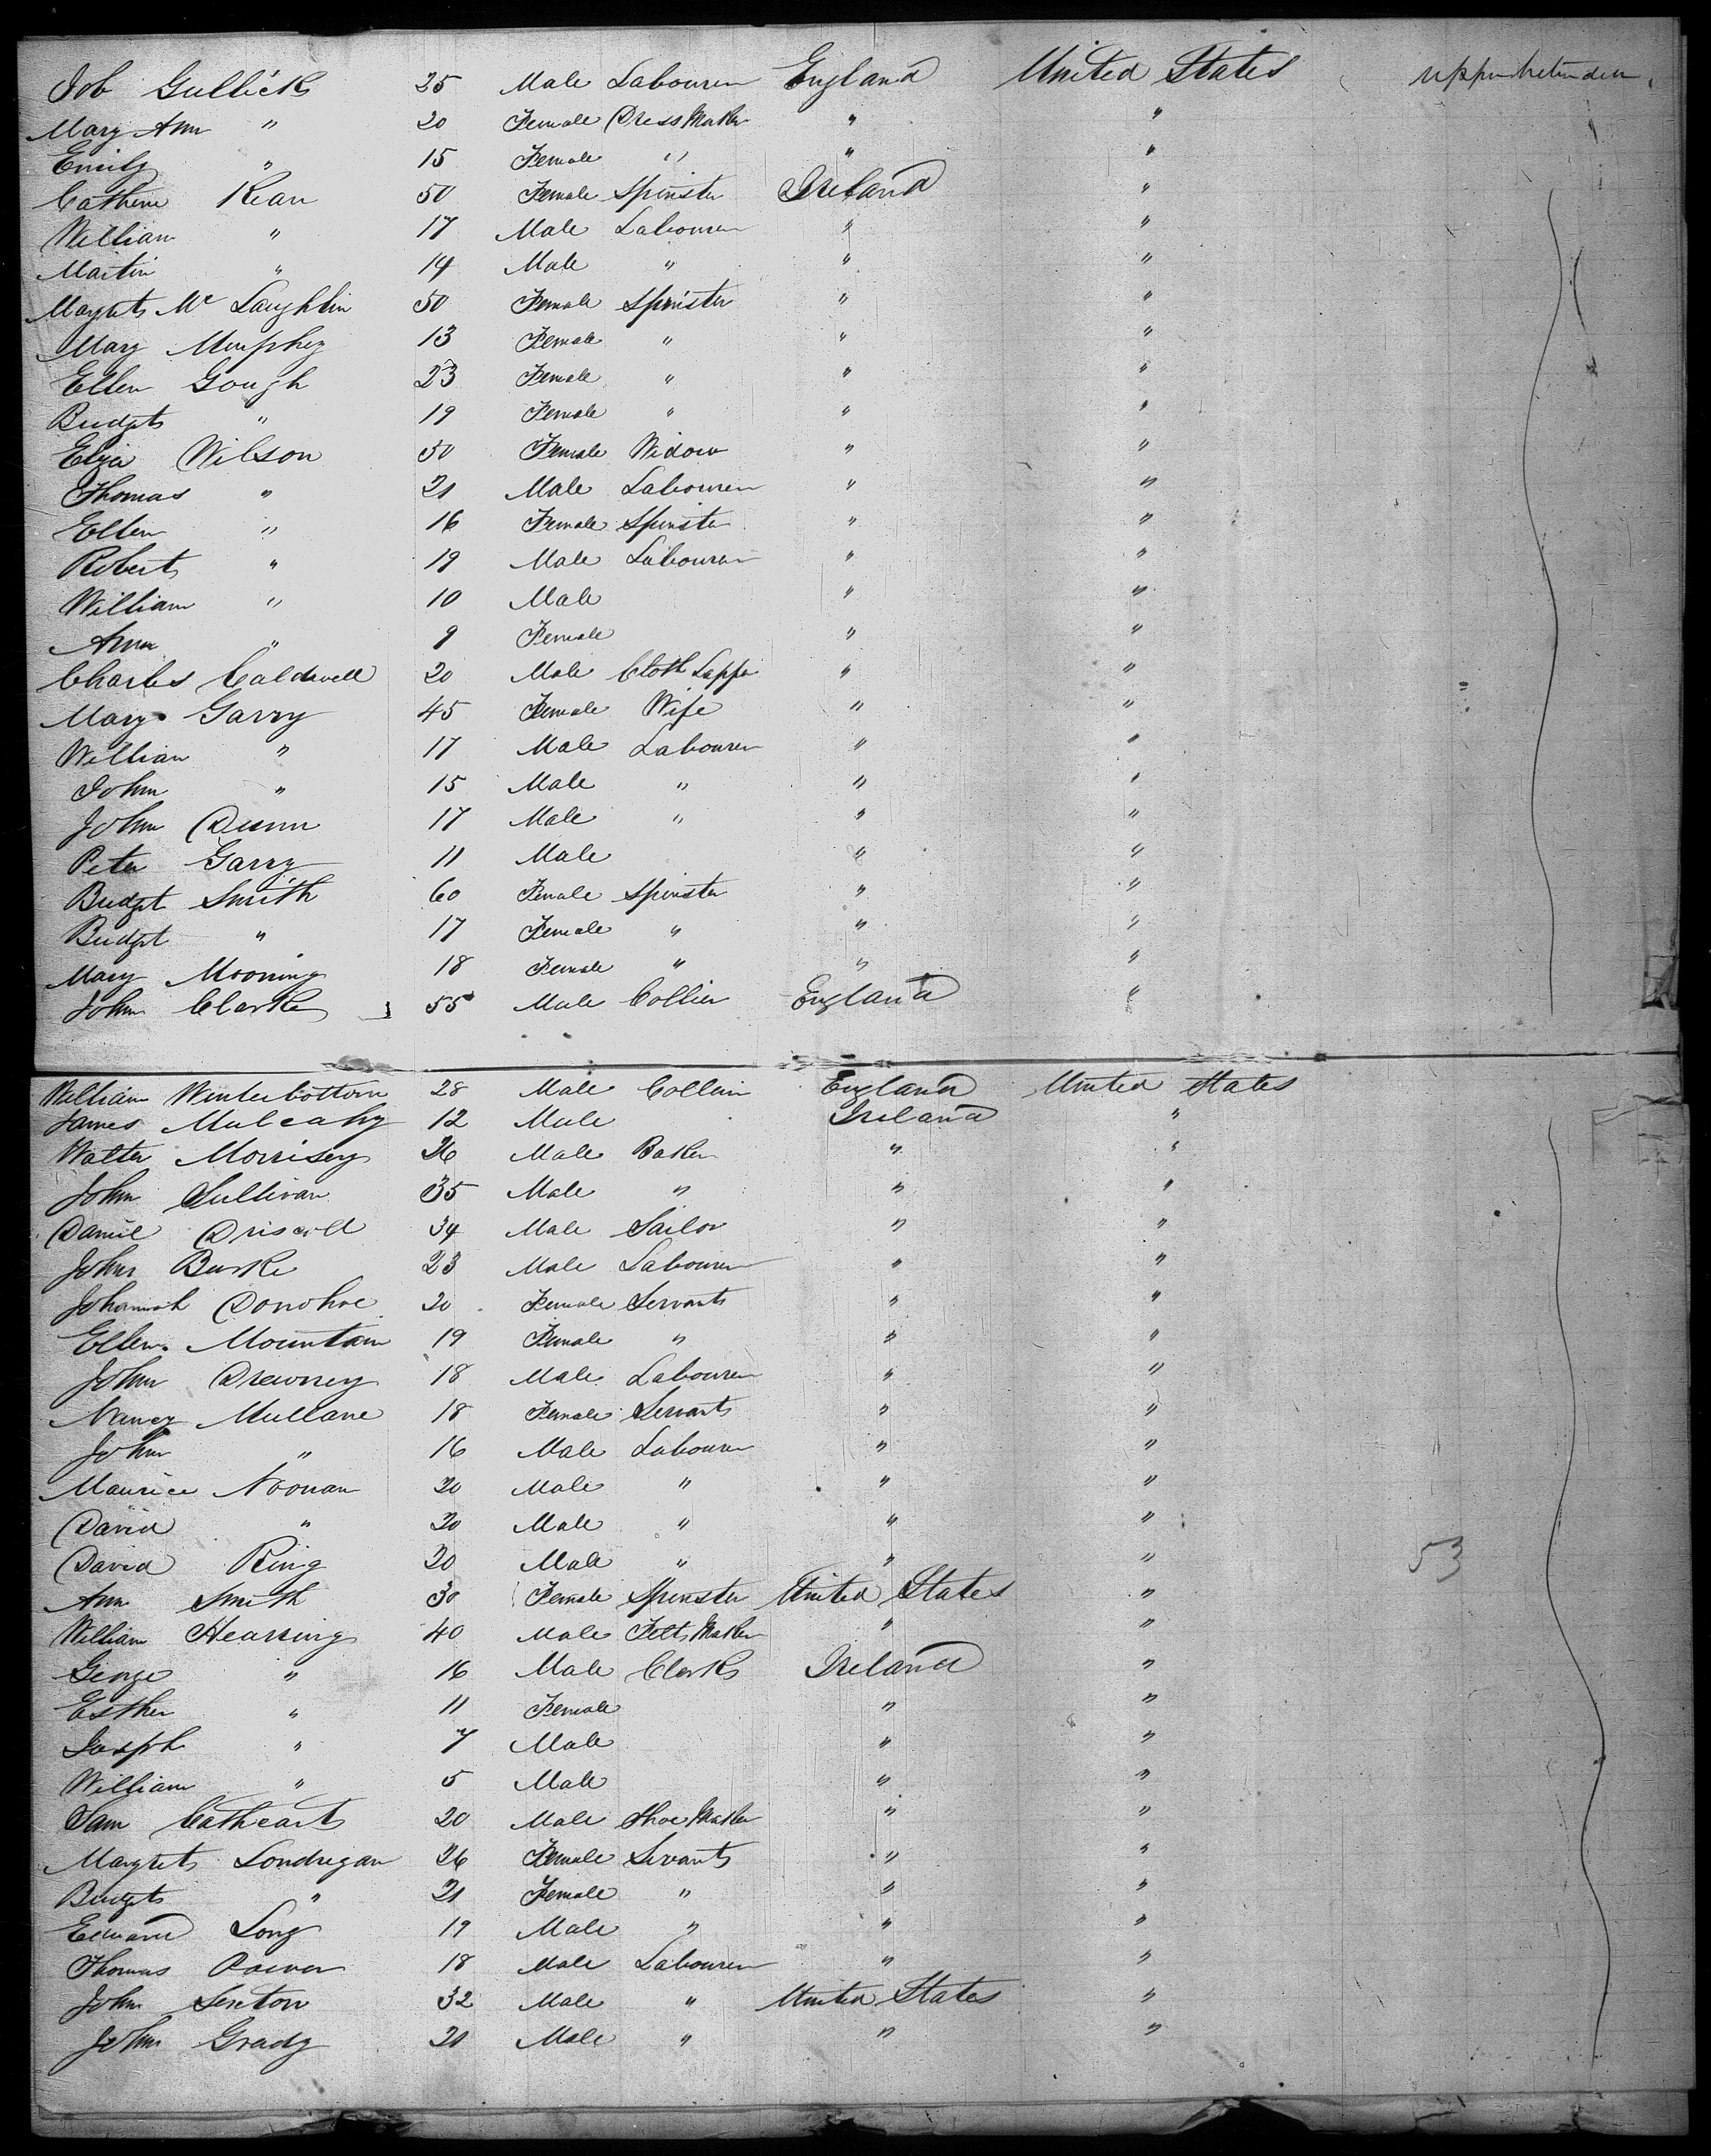 Job Gullick 25 Male Labourer England United States
Mary Ann " 20 Female Dress Maker " "
Emily " 15 Female " " "
Cathrine Kean 50 Female Spinster Ireland "
William " 17 Male Labourer " "
Martin " 14 Male " " "
Margrets Mc Laughlin 50 Female Spinster " "
Mary Murphey 13 Female " " "
Ellen Gough 23 Female " " "
Bridgets " 19 Female " " "
Eliza Wilson 50 Female Widow " "
Thomas " 21 Male Labourer " "
Ellen " 16 Female Spinster " "
Robert " 19 Male Labourer " "
William " 10 Male " "
Ann " 9 Female " "
Charles Caldwell 20 Male Cloth Lapper " "
Mary Garry 45 Female Wife " "
William " 17 Male Labourer " "
John " 15 Male " " "
John Dunn 17 Male " " "
Peter Garry 11 Male " "
Bridget Smith 60 Female Spinster " "
Bridget " 17 Female " " "
Mary Mooning 18 Female " " "
John Clarke 55 Male Collier England "
William Winterbottom 28 Male Collier England United States
James Mulcahy 12 Male Ireland "
Walter Morrisey 26 Male Baker " "
John Sullivan 35 Male " " "
Daniel Driscoll 34 Male Sailor " "
John Burke 23 Male Labourer " "
Johannah Donohoe 20 Female Servants " "
Ellen Mountain 19 Female " " "
John Drewney 18 Male Labourer " "
Nancy Mullane 18 Female Servants " "
John " 16 Male Labourer " "
Maurice Noonan 20 Male " " "
David " 20 Male " " "
David Ring 20 Male " " " 53
Ann Smith 30 Female Spinster United States "
William Hearring 40 Male Felts Maker " "
George " 16 Male Clerks Ireland "
Esther " 11 Female " "
Joseph " 7 Male " "
William " 5 Male " "
Sam Cathcart 20 Male Shoe Maker " "
Margrets Londregan 26 Female Servants " "
Bridgets " 21 Female " " "
Edward Long 19 Male " " "
Thomas Power 18 Male Labourer " "
John Sexton 32 Male " United States "
John Grady 21 Male " " "